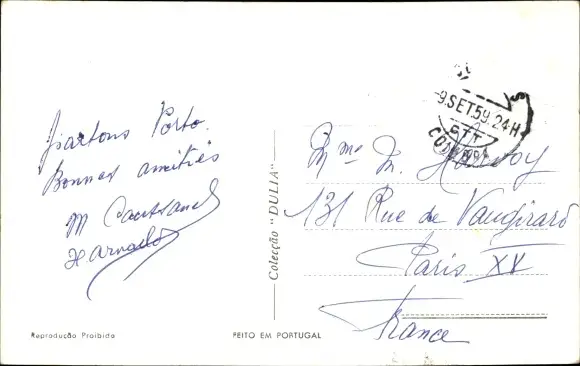 Partons Porto.
Bonnes amitiés
M
9.SET.59.24H
CTT
Mme M.
131 Rue de Vaugirard
Paris XV
France
Colecção "DULIA"
Reprodução Proibida
FEITO EM PORTUGAL